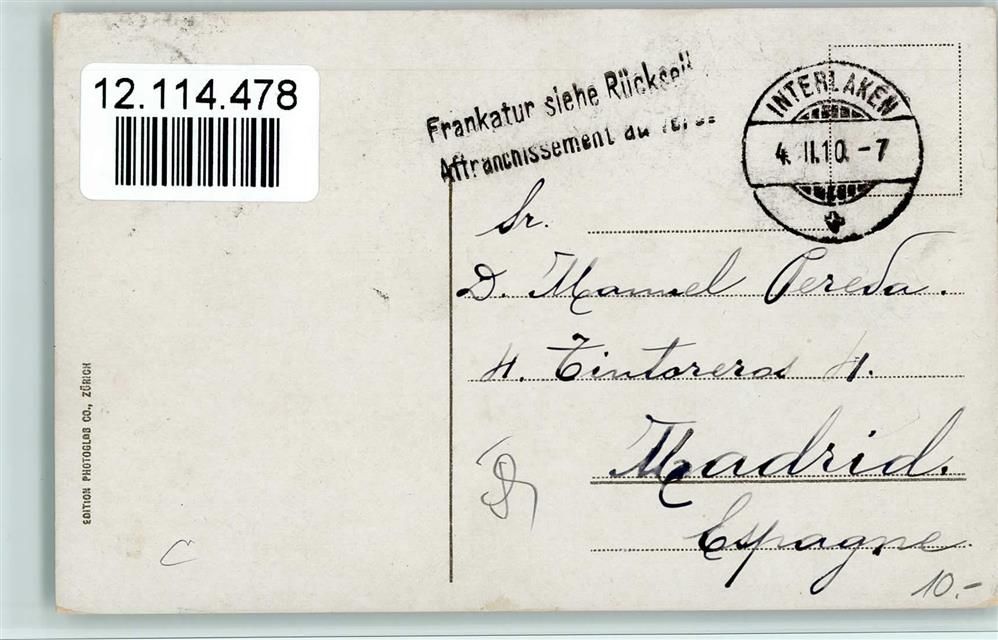 12.114.478
Frankatur siehe Rücksei
Affranchissement au
INTERLAKEN
4. II.10. -7
Sr.
D. Manuel Pereda.
4. Tintoreros 4.
Madrid.
Espagne.
EDITION PHOTOGLOB CO., ZÜRICH
10.-